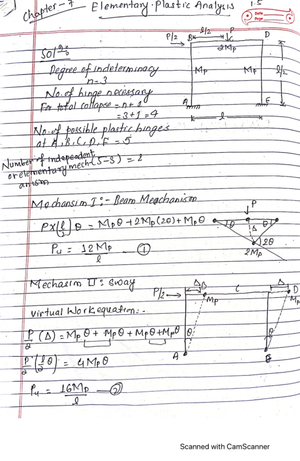 Chapter-7 Elementary Plastic Analysis
Date
Page
Solⁿ:-
Degree of indeterminacy
n=3
No. of hinge necessary
For total collapse = n+1
= 3+1 = 4
No. of possible plastic hinges
at A, B, C, D, E = 5
Number of independent
or elementary mech (5-3) = 2
P/2 B l/2 P D
2Mp
Mp Mp l/2
A E
l
Mechanism I :- Beam Mechanism
P×(l/2) θ = Mpθ + 2Mp(2θ) + Mpθ
Pu = 12Mp/l — ①
P
θ Δ θ
2θ
2Mp
Mechanism II :- Sway
Virtual Work equation:-
P/2 (Δ) = Mpθ + Mpθ + Mpθ + Mpθ
P/2 (l/2 θ) = 4Mpθ
Pu = 16Mp/l — ②
P/2 Δ B C Δ D
Mp Mp
θ θ
A E
Scanned with CamScanner